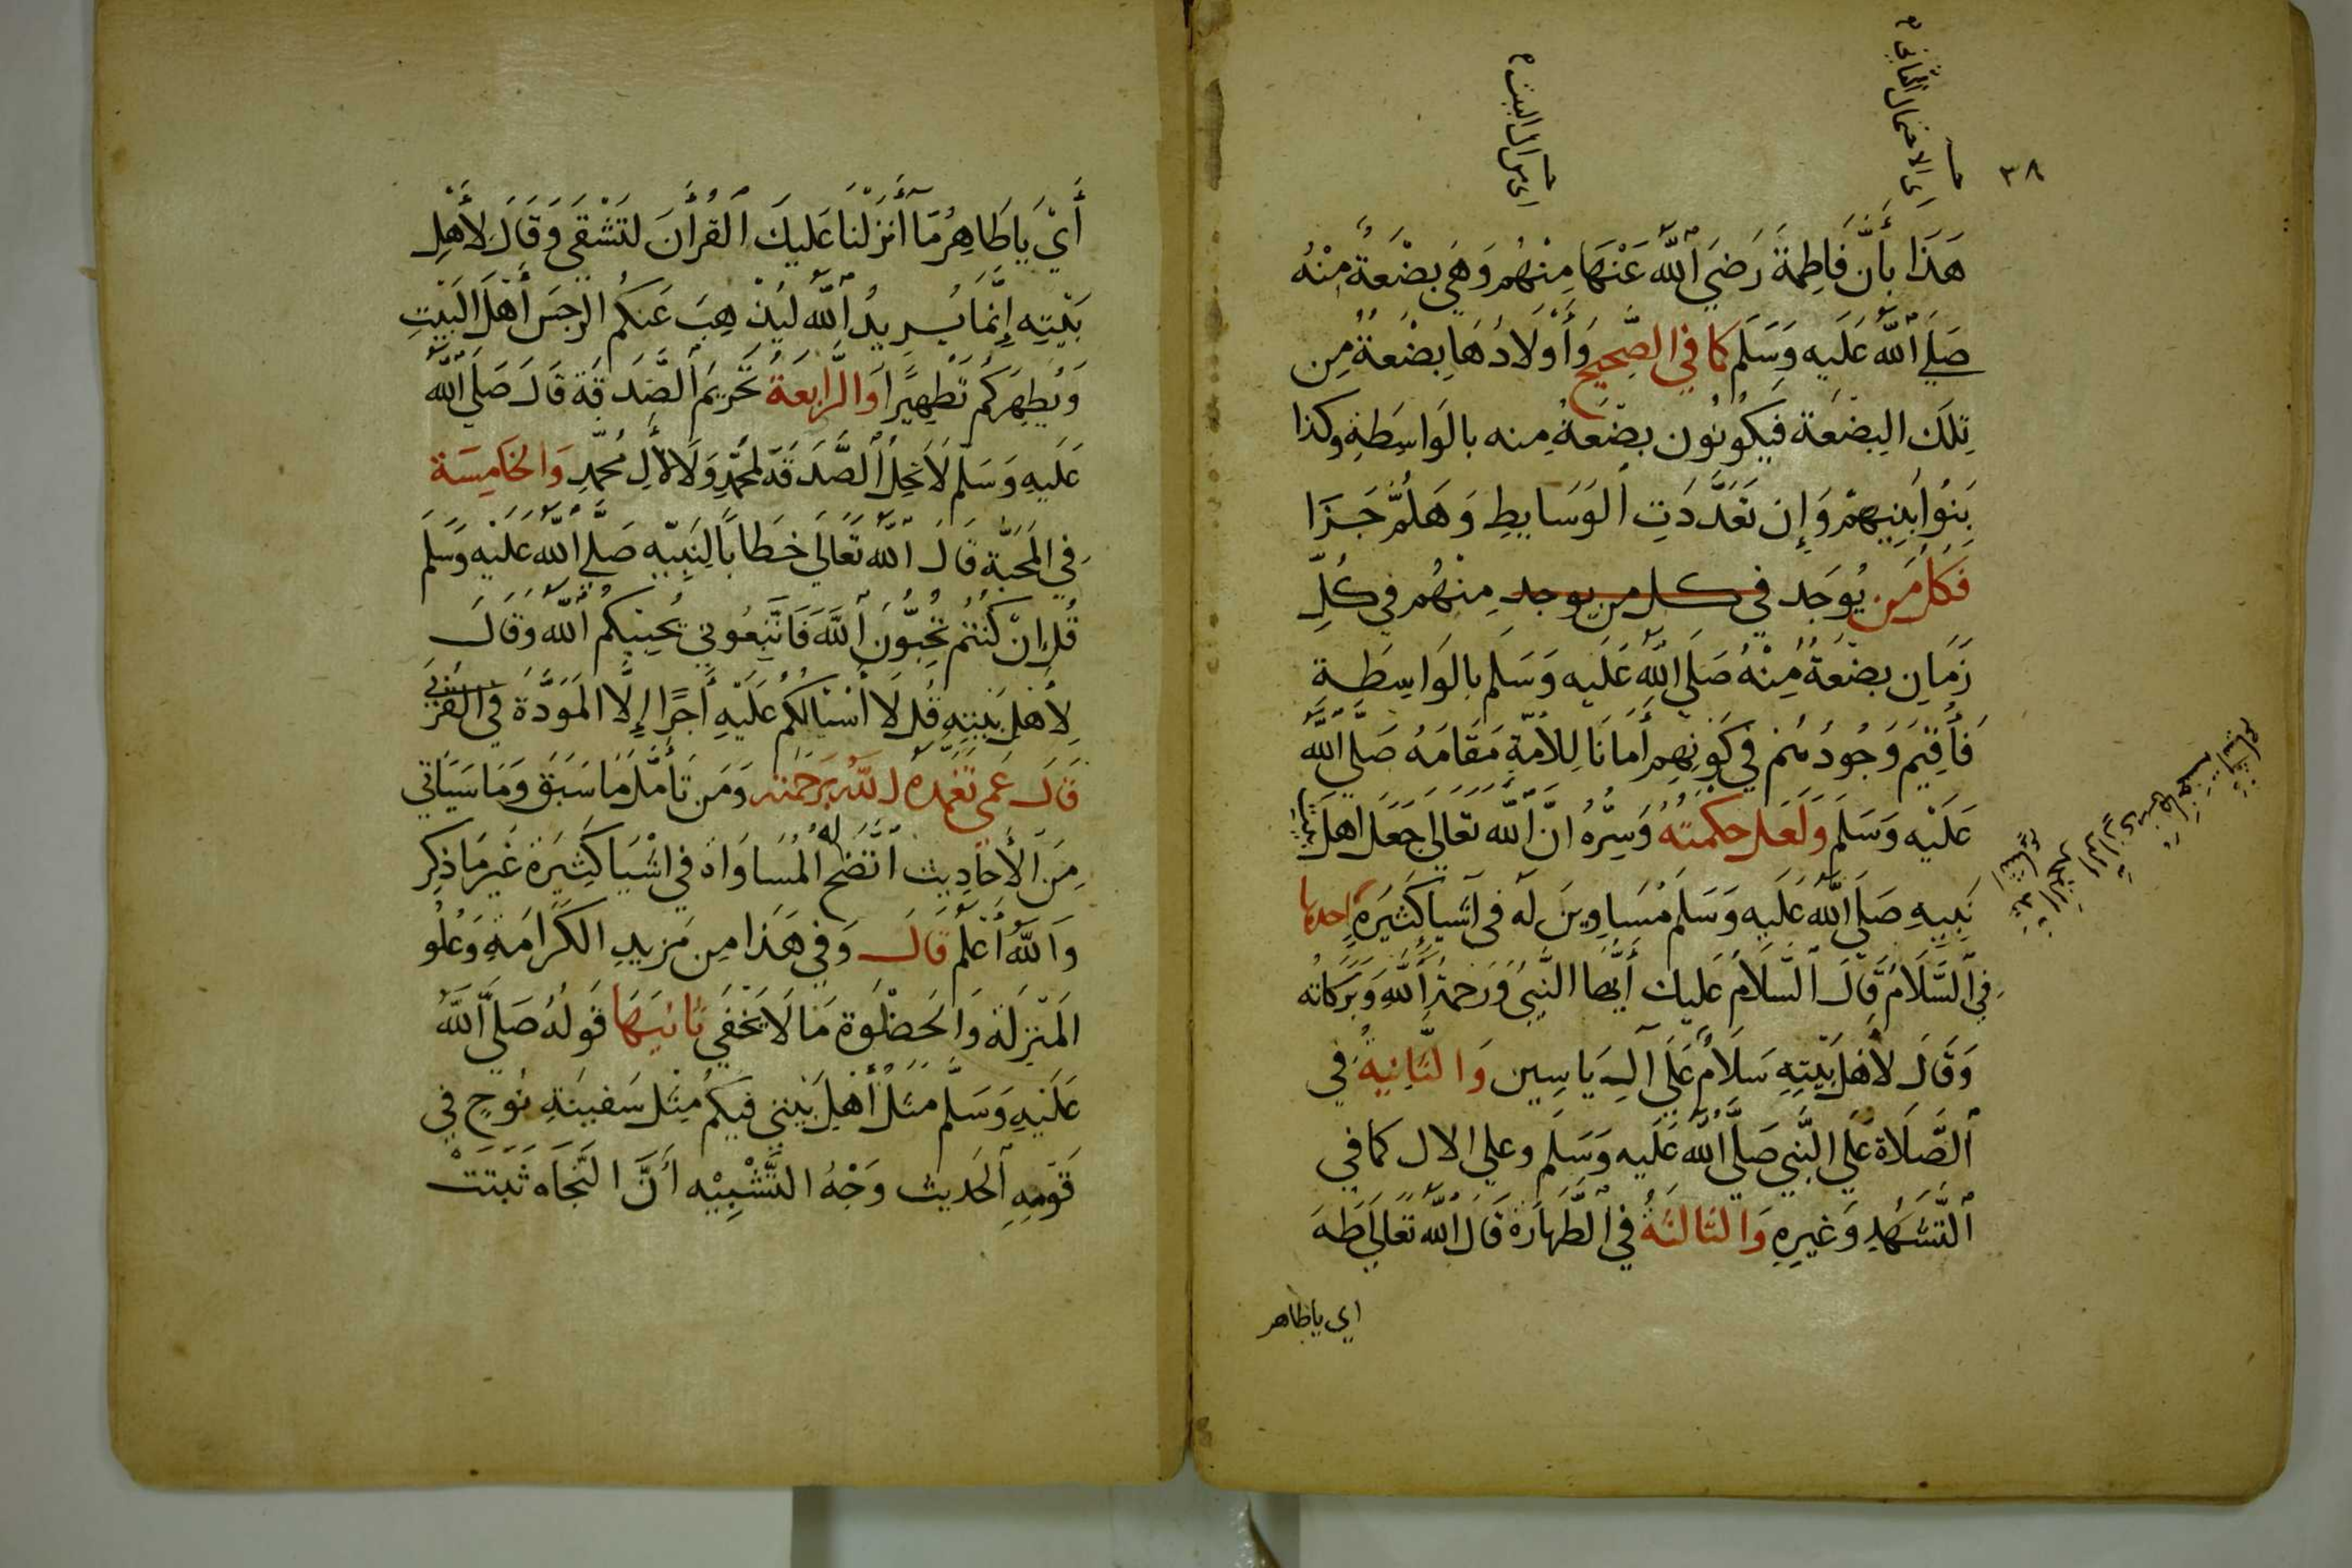 ٣٨
اى الاحتمال الثانى
هَذَا بِأَنَّ فَاطِمَةَ رَضِيَ ٱللَّهُ عَنْهَا مِنْهُم وَهِيَ بِضْعَةٌ مِنْهُ
صَلَى ٱللَّهُ عَلَيه وَسَلَم كما في الصَّحِيحِ وَأَوْلَادُهَا بِضْعَةٌ مِن
تِلكَ البِضعَة فَيَكُونُون بِضعَةٌ مِنه بالوَاسِطَةِ وكذا
بَنُوا بَنِيهِمْ وَإِن تَعَدَّدَتِ ٱلوَسَايِطِ وَهَلُمَّ جَرّا
فَكل مَن يُوجَد في كل من يوجد مِنْهُم فِي كُلِّ
زَمَانٍ بِضْعَةٌ مِنْهُ صَلَى اللَّهُ عَلَيه وَسَلم بِالوَاسِطَةِ
فَأُقِيمَ وُجُودُهُم فِي كَوْنِهِم أَمَانًا لِلأُمَّةِ مَقَامَهُ صَلَّى ٱللَّهُ
عَلَيْه وَسَلَم وَلَعَل حكمته وَسِرُّهُ انَّ ٱللَّه تَعَالى جَعَلَ اهلَ بيت
نَبِيهِ صَلَى اللَّهُ عَلَيه وَسَلم مُسَاوِينَ لَه فى أشيا كَثِيرَةٍ احدها
فِي السَّلَامُ قَالَ ٱلسَّلَامُ عَلَيك أَيُّهَا النَّبِيُ وَرَحمَةُ ٱللَّهِ وَبَرَكَاتُه
وَقَالَ لأَهلِ بَيْتِهِ سَلَامٌ عَلَى آلِ يَاسِين وَالثَّانِيَةُ فِي
ٱلصَّلَاة عَلَى النَّبِي صَلَى ٱللَّهُ عَلَيه وَسَلَم وعلى الال كما في
ٱلتَّشَهُّدِ وَغَيرِهِ وَالثَالثَةُ في ٱلطَّهَارَة قَالَ ٱللَّه تَعَالَى طَهَ
اي ياطاهر
أَيْ يَا طَاهِرُ مَآ أَنْزَلْنَا عَلَيكَ ٱلقُرأَنَ لِتَشْقَى وَقَالَ لأَهْلِ
بَيْتِهِ إِنَّمَا يُرِيدُ ٱللَّهُ لِيُذْهِبَ عَنكُمُ الرِّجسَ أَهْلَ البَيْتِ
وَيُطِهرَكُم تَطْهِيرًا وَالرَّابِعَةُ تَحْرِيمَ ٱلصَّدَقَة قَالَ صَلَى ٱللَّه
عَلَيهِ وَسَلَّم لَا تَحِلُّ ٱلصَّدَقَة لِمحَمَّدٍ وَلَا لأَلِ مُحَمَّدٍ وَالخَامِسَة
فِي المَحَبَّة قَالَ ٱللَّه تَعَالَى خطَابًا لِنَبِيّهِ صَلَّى ٱللَّه عَلَيْه وَسَلَّمَ
قُل إِنْ كُنْتُمْ تُحِبُّونَ ٱللَّهَ فَاتَّبِعُونِي يُحْبِبكُمُ ٱللَّهُ وَقَالَ
لِأَهْلِ بَيْتِهِ قُل لَا أَسْئَالُكُم عَلَيْهِ أَجرًا إِلَّا المَوَدَّةَ فِي القُرْبَى
قَالَ عَمى تَغَمدَه اللَّهُ بِرَحْمَته وَمَن تَأَمَّلَ مَا سَبَقَ وَمَا سَيَاتي
مِنَ ٱلأَحَادِيث اتَّضَحَ له المُسَاوَاة في اشْيَا كَثِيرَة غَيرِ مَا ذُكِر
وَٱللَّهُ أَعْلَم قَالَ وَفِي هَذَا مِن مَزِيدِ الكَرَامَةِ وَعُلُو
المَنْزِلَة وَٱلحَضْلوَة مَا لَا يَخْفَي ثَانِيَهَا قَولُهُ صَلَّى ٱللَّهُ
عَلَيْهِ وَسَلَّم مَثَلُ أَهْلِ بَيْتِي فِيكُم مَثَل سَفِينَةِ نُوحٍ في
قَوْمِهِ ٱلحَدِيث وَجْهُ التَّشْبِيْه أَنَّ النَّجَاه ثَبَتَتْ